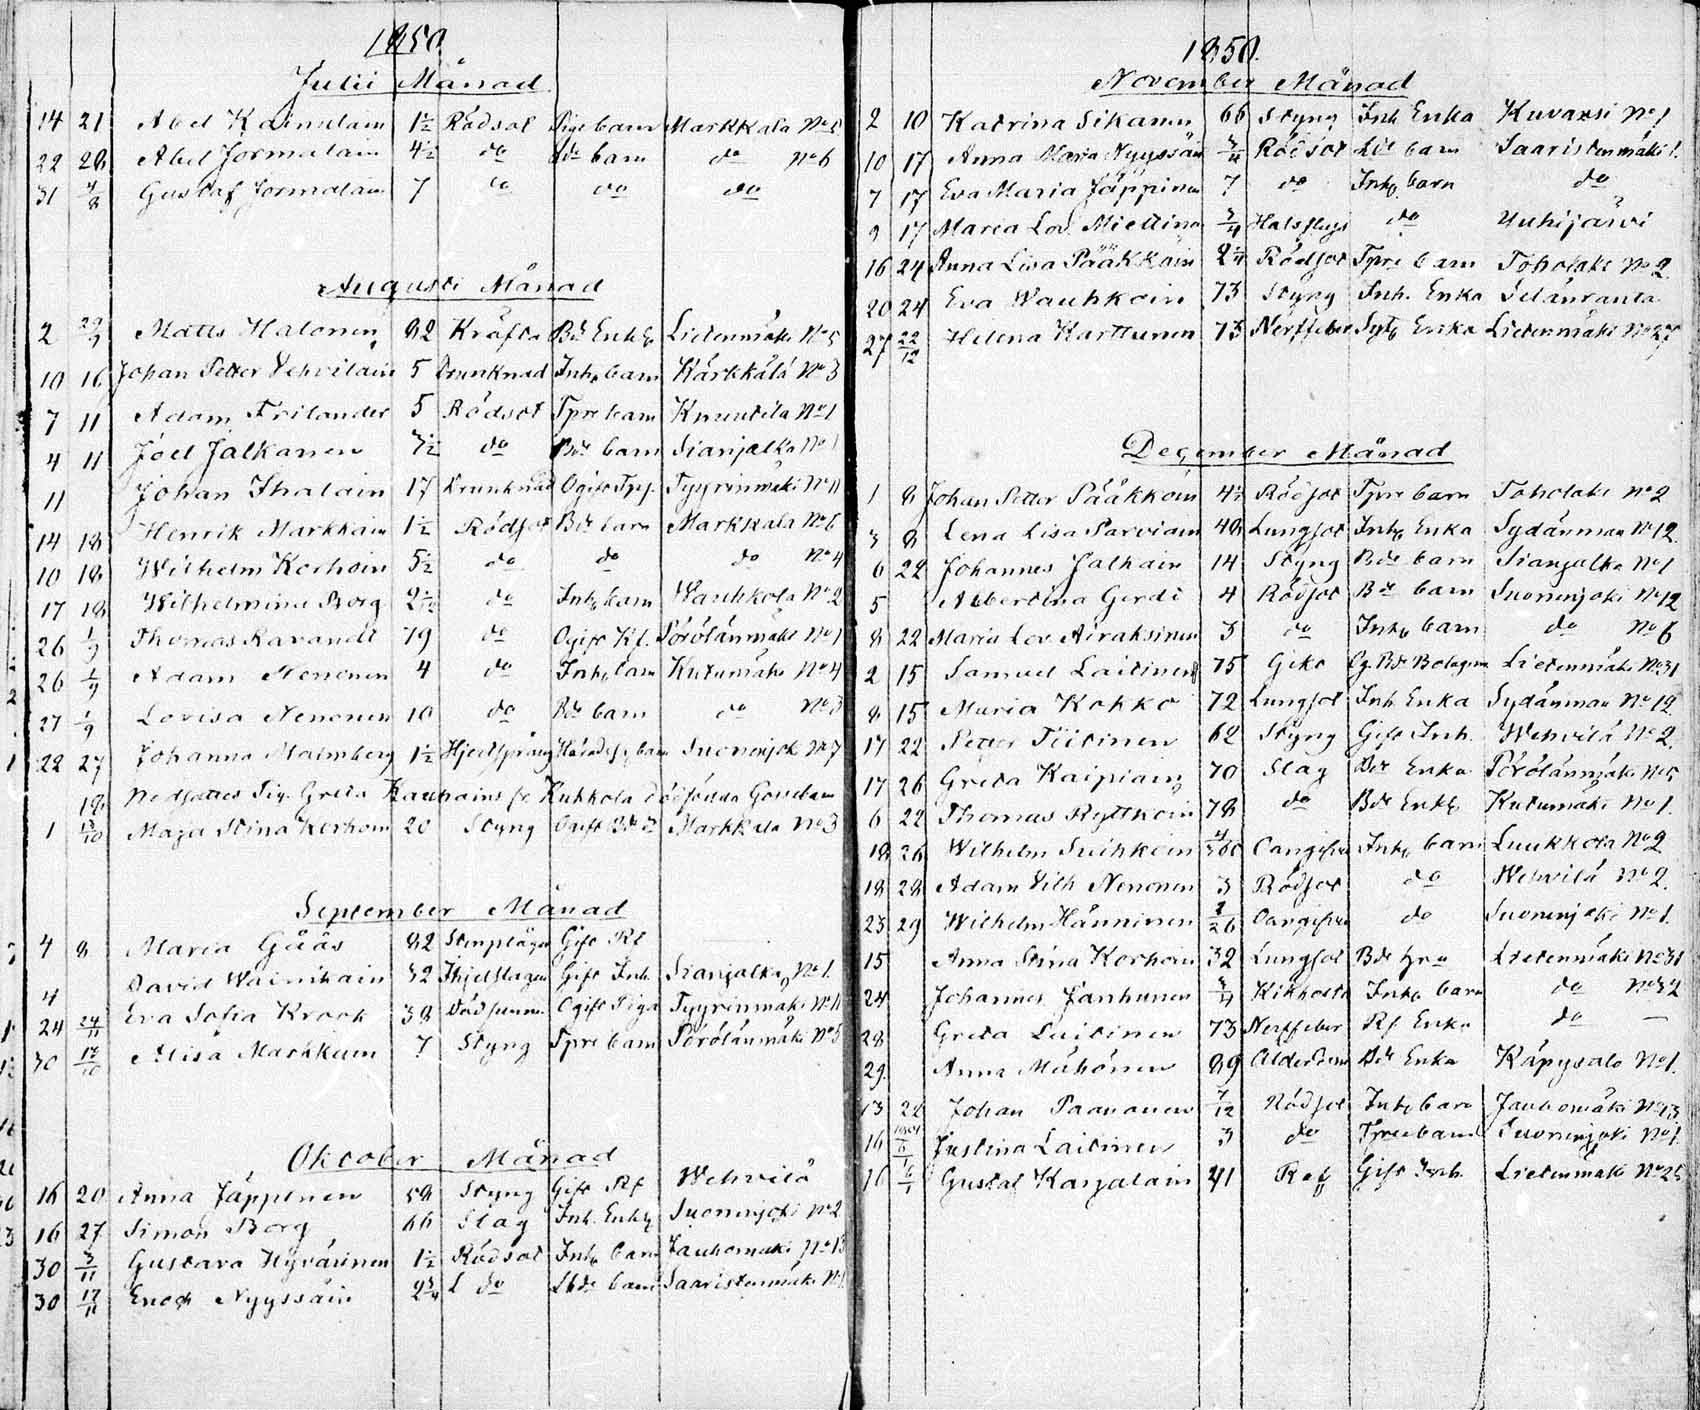 1850.
Julii Månad.
14 21 Abel Kainulain 1½ Rödsot Pige barn Markkala No 5
22 28 Abel Jormalain 4½ do Bde barn do No 6
31 4/8 Gustaf Jormalain 7 do do do
Augusti Månad
2 Matts Halonen 82 Kräfta Bde Enkl. Lietenmäki No 5
10 16 Johan Petter Vehviläin 5 Drunknad Inh. barn Kärkkälä No 3
7 11 Adam Frilander 5 Rödsot Tpre barn Knuutila No 1
4 11 Joel Jalkanen 7½ do Bde barn Sianjalka No 1
11 Johan Ihalain 17 Drunknad Ogift Tpj. Tyyrinmäki No 11
14 18 Henrik Markkain 1½ Rödsot Bde barn Markkala No 6
10 18 Wilhelm Korhoin 5½ do do do No 4
17 18 Wilhelmina Borg do Inh. barn Wauhkola No 2
26 1/9 Thomas Ravandt 79 do Ogift Kf. Pörölänmäki No 1
26 1/9 Adam Nenonen 4 do Inh. barn Kutumäki No 4
27 1/9 Lovisa Nenonen 10 do Bde barn do No 3
22 27 Johanna Malmberg 1½ barn Suonenjok No 7
18 Nedsattes Pig. Greta Kauhains fr Kukkola dödfödda Gossebarn
1 13/10 Maja Stina Korhoin 20 Styng Ogift Bde Markkala No 3
September Månad
4 8 Maria Gåås 82 Stenplågen Gift Rf
4 David Wainikain 32 Gift Inh. Sianjalka No 1.
24 24/11 Eva Sofia Krook 38 Ogift Piga Tyyrinmäki No 11
30 Alisa Markkain 7 Styng Tpre barn Pörölänmäki No 5
Oktober Månad
16 20 Anna Jäppinen 58 Styng Gift Rf Wehvilä
16 27 Simon Borg 66 Slag Inh. Enkl. Suonenjoki No 2
30 3/11 Gustava Hyvärinen 1½ Rödsot Inh. barn Jauhomäki No 13
30 17/11 Enok Nyyssäin 2¾ do barn Saaristenmäki No 1
1850.
November Månad
2 10 Katrina Sikanen 66 Styng Inh. Enka Kuvansi No 1
10 17 Anna Maria Nyyssäin ¾ Rödsot barn Saaristenmäki 1.
7 17 Eva Maria Jäppinen 7 do Inh. barn do
9 17 Maria Lov. Miettinen ¾ Halsfluss do Yuhijärvi
16 24 Anna Lisa Pääkköin 2¼ Rödsot Tpre barn Toholaht No 2
20 24 Eva Wauhkoin 73 Styng Inh. Enka Selänranta
27 22/12 Helena Karttunen 73 Nerffeber Enka Lietenmäki No 27
December Månad
1 8 Johan Petter Pääkköin 4½ Rödsot Tpre barn Toholaht No 2
3 8 Lena Lisa Parviain 48 Lungsot Inh. Enka Sydänmaa No 12
6 22 Johannes Jalkain 14 Styng Bde barn Sianjalka No 1
5 Albertina Gerdt 4 Rödsot Bde barn Suonenjoki No 12
8 22 Maria Lov. Airaksinen 3 do Inh. barn do No 6
2 15 Samuel Laitinen 75 Gikt Bolagsm Lietenmäki No 31
8 15 Maria Kokko 72 Lungsot Inh. Enka Sydänmaa No 12
17 22 Petter Tiitinen 62 Styng Gift Inh. Wehvilä No 2
17 26 Greta Kaipiain 70 Slag Bde Enka Pörölänmäki No 5
6 22 Thomas Ryttköin 78 do Bde Enkl. Kutumäki No 1.
18 26 Wilhelm Suihkoin Inh. barn Luukkola No 2
18 28 Adam Vilh. Nenonen 3 Rödsot do Wehvilä No 2
23 29 Wilhelm Hänninen do Suonenjoki No 1.
15 Anna Stina Korhoin 32 Lungsot Bde Hru Lietenmäki No 31
24 Johannes Janhunen ¾ Kikhosta Inh. barn do No 32
28 Greta Luitinen 73 Nerffeber Rf Enka do —
29. Anna Mähönen 89 Ålderdom Bde Enka Käpysalo No 1.
13 22 Johan Paananen 7/12 Rödsot Inh. barn Jauhomäki No 13
16 Justina Laitinen 3 do Tpre barn Suonenjoki No 1
16 Gustaf Karjalain 41 Ref Gift Inh. Lietenmäki No 25